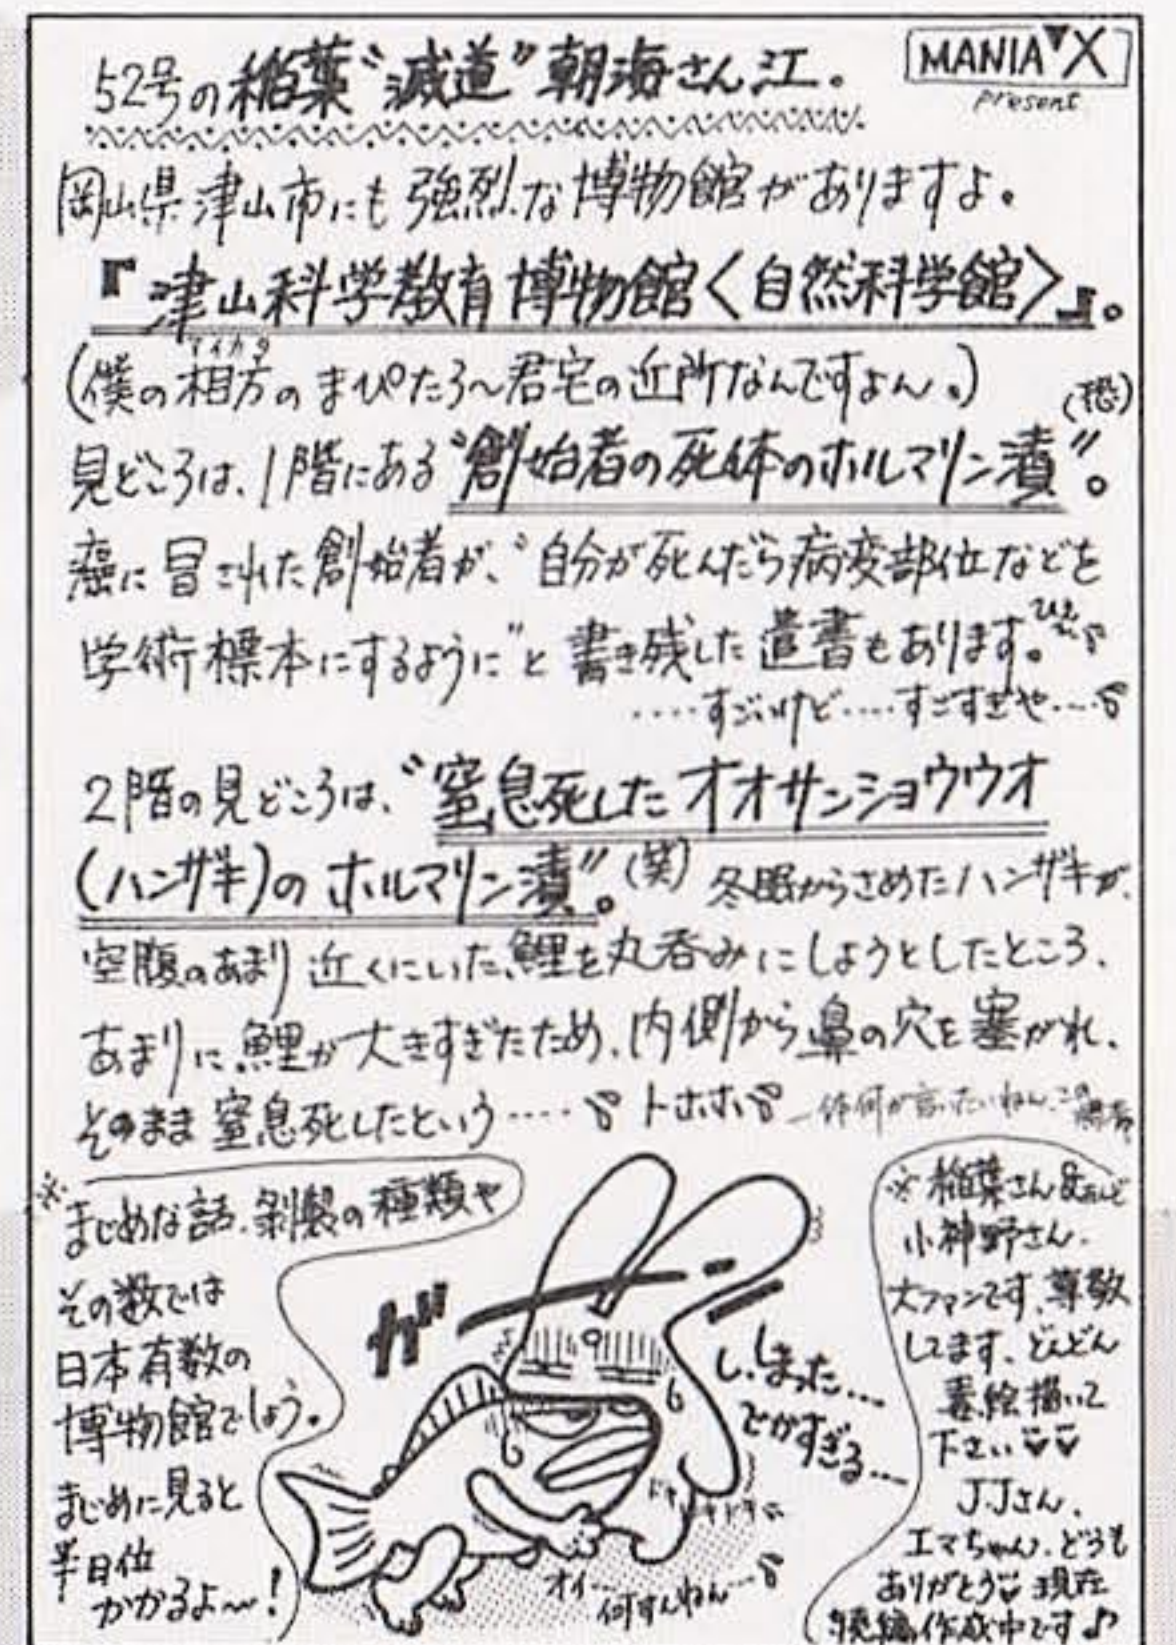 52号の稲葉“滅道”朝海さん江。
MANIA▼X
present
岡山県津山市にも強烈な博物館がありますよ。
『津山科学教育博物館〈自然科学館〉』。
(僕の相方のまぴたろ〜君宅の近所なんですよん。)
アイカタ
(恐)
見どころは、1階にある“創始者の死体のホルマリン漬”。
癌に冒された創始者が、“自分が死んだら病変部位などを
学術標本にするように”と書き残した遺書もあります。
‥‥すごいけど‥‥すごすぎや‥‥
2階の見どころは、“窒息死したオオサンショウウオ
(ハンザキ)のホルマリン漬”。(笑) 冬眠からさめたハンザキが、
空腹のあまり近くにいた、鯉を丸呑みにしようとしたところ、
あまりに鯉が大きすぎたため、内側から鼻の穴を塞がれ、
そのまま窒息死したという‥‥ トホホ 一体何が言いたいねん、この
※
まじめな話、剥製の種類や
その数では
日本有数の
博物館でしょう。
まじめに見ると
半日位
かかるよ〜!
ガ
し、しまった…
でかすぎる…
オイ…
何すんねん…
※稲葉さん&
小神野さん、
大ファンです、尊敬
してます、どんどん
毒絵描いて
下さい
J.Jさん、
エマちゃん、どうも
ありがとう 現在
続編作成中です♪